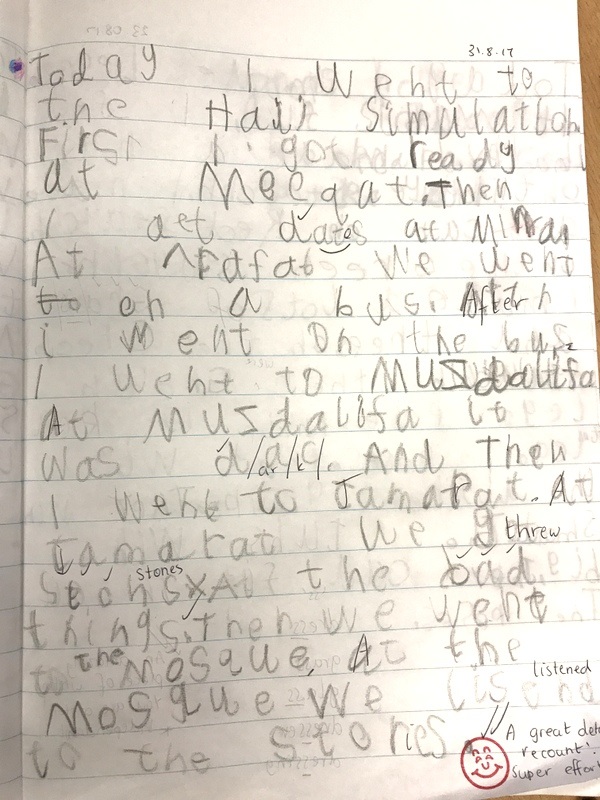 31.8.17
Today I went to
the Hajj Simulation
First I got ready
at Meeqat. Then
I aet dates at Minan
At Arafat We went
to on a bus. After
i went on the bus
I went to MUSdalifa
At MUSdalifa it
was d/ar/k/. And Then
I went to Jamarat. At
Jamarat We threw
stones
stons At the bad
things. Then we went
to the Mosque. At the
listened
Mosque We lisond
to the Stories
A great det
recount!
Super effor